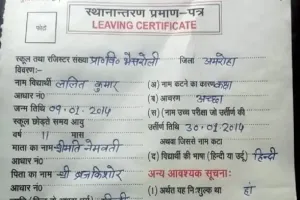 स्थानान्तरण प्रमाण-पत्र
LEAVING CERTIFICATE
फोटो
स्कूल तथा रजिस्टर संख्या प्रा०वि० भैसरोली जिला अमरोहा
विवरण:-
नाम विद्यार्थी ललित कुमार (अ) नाम कटने का कारण कक्षा
आधार नं० (ब) आचरण अच्छा
जन्म तिथि 09.01.2014 (स) नाम उच्च परीक्षा जो उर्त्तीण की
स्कूल छोड़ते समय आयु उर्त्तीण तिथि 30.01.2014
वर्ष 11 मास अथवा जिससे नाम कटा
माता का नाम श्रीमति नेमवती (द) विद्यार्थी की भाषा (हिन्दी या उर्दू) हिन्दी
आधार नं०
पिता का नाम श्री ब्रजकिशोर अन्य आवश्यक सूचना:
आधार नं० (1) अर्थात यह नि:शुल्क था हां